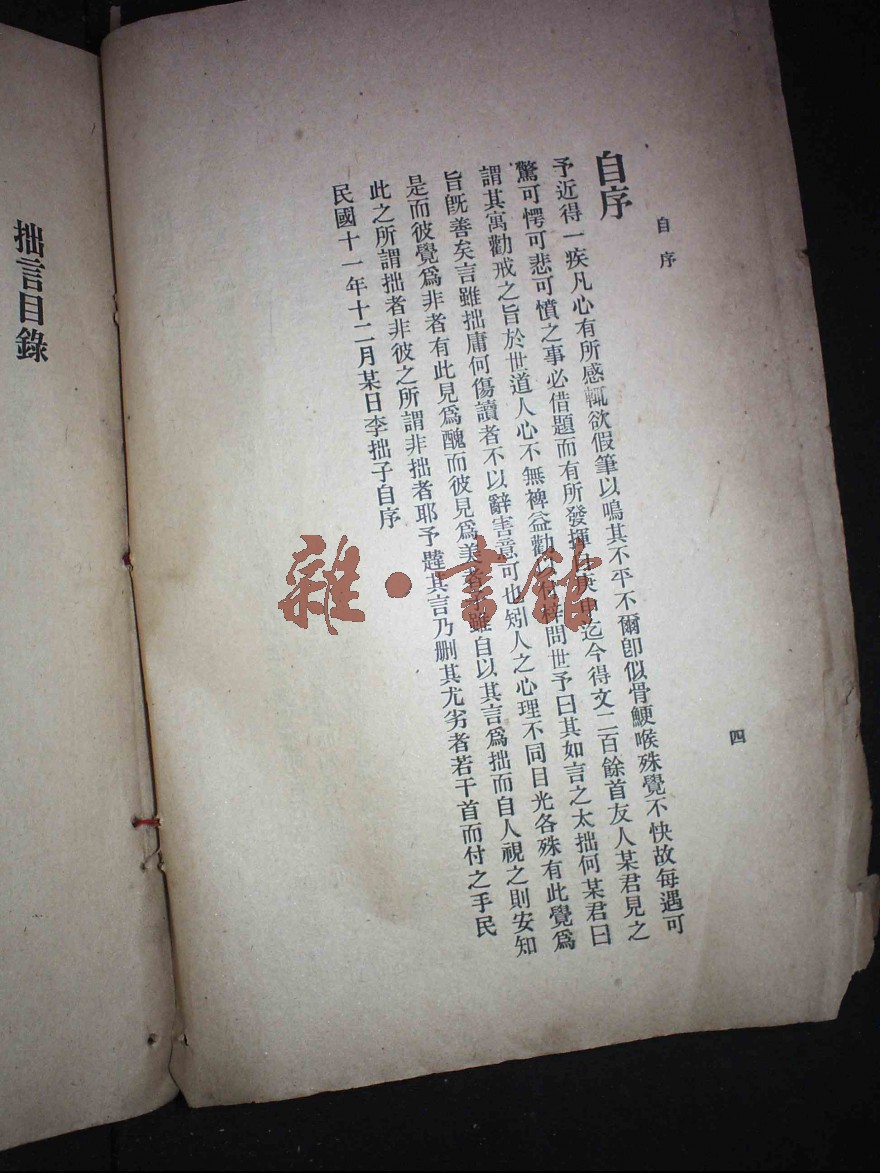 自序
四
自序
予近得一疾凡心有所感輒欲假筆以鳴其不平不爾卽似骨鯁喉殊覺不快故每遇可
驚可愕可悲可憤之事必借題而有所發揮庚申迄今得文二百餘首友人某君見之
謂其寓勸戒之旨於世道人心不無裨益勸梓問世予曰其如言之太拙何某君曰
旨旣善矣言雖拙庸何傷讀者不以辭害意可也矧人之心理不同目光各殊有此覺爲
是而彼覺爲非者有此見爲醜而彼見爲美者雖自以其言爲拙而自人視之則安知
此之所謂拙者非彼之所謂非拙者耶予韙其言乃删其尤劣者若干首而付之手民
民國十一年十二月某日李拙子自序
拙言目錄
雜·書館